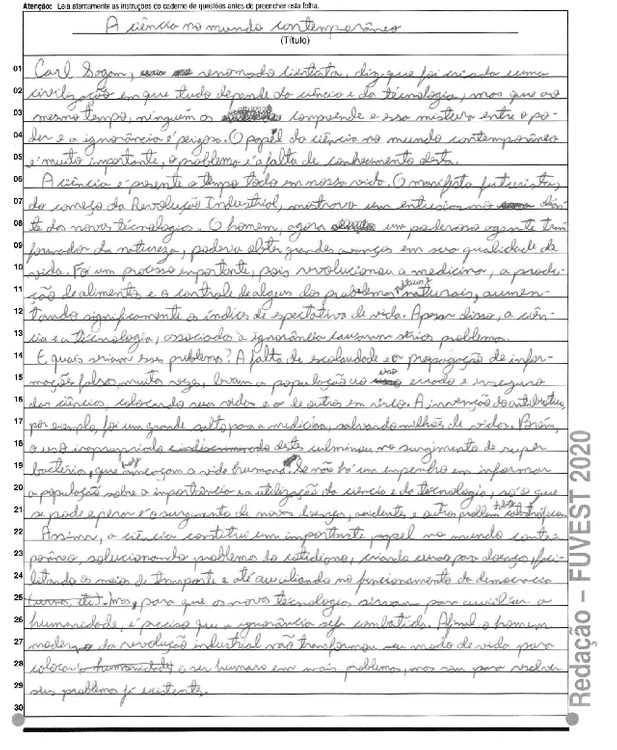 Atenção: Leia atentamente as instruções do caderno de questões antes de preencher esta folha.
A ciência no mundo contemporâneo
(Título)
01 Carl Sagan, renomado cientista, diz que foi criada uma
02 civilização em que tudo depende da ciência e da tecnologia, mas que ao
03 mesmo tempo, ninguém as compreende e essa mistura entre o po-
04 der e a ignorância é perigosa. O papel da ciência no mundo contemporâneo
05 é muito importante, o problema é a falta de conhecimento desta.
06 A ciência é presente o tempo todo em nossa vida. O manifesto futurista,
07 do começo da Revolução Industrial, mostrava um entusiasmo dian-
08 te das novas tecnologias. O homem, agora um poderoso agente trans-
09 formador da natureza, poderia obter grandes avanços em sua qualidade de
10 vida. Foi um processo importante, pois revolucionou a medicina, a produ-
11 ção de alimentos e o controle de alguns dos problemas naturais, aumen-
12 tando significamente os índices de expectativa de vida. Apesar disso, a ciên-
13 cia e a tecnologia, associadas a ignorância causaram sérios problemas.
14 E quais seriam esses problemas? A falta de escolaridade e a propagação de infor-
15 mações falsas, muitas vezes, levam a população ao uso errado e inseguro
16 das ciências, colocando sua vida e a de outros em risco. A invenção do antibiótico,
17 por exemplo, foi um grande salto para a medicina, salvando milhões de vidas. Porém,
18 o uso inapropriado indiscriminado deste culminou no surgimento de super
19 bactérias, que hoje ameaçam a vida humana. Se não há um empenho em informar
20 a população sobre a importância e a utilização da ciência e da tecnologia, só o que
21 se pode esperar é o surgimento de novas doenças, acidentes e outros problemas catastróficos.
22 Assim, a ciência constitui um importante papel no mundo contem-
23 porâneo, solucionando problemas do cotidiano, criando curas para doenças, faci-
24 litando os meios de transporte e até auxiliando no funcionamento da democracia
25 Mas, para que as novas tecnologias sirvam para auxiliar a
26 humanidade, é preciso que a ignorância seja combatida. Afinal o homem
27 moderno da revolução industrial não transformou seu modo de vida para
28 colocar a humanidade o ser humano em mais problemas, mas sim para resolver
29 seus problemas já existentes.
30
Redação – FUVEST 2020